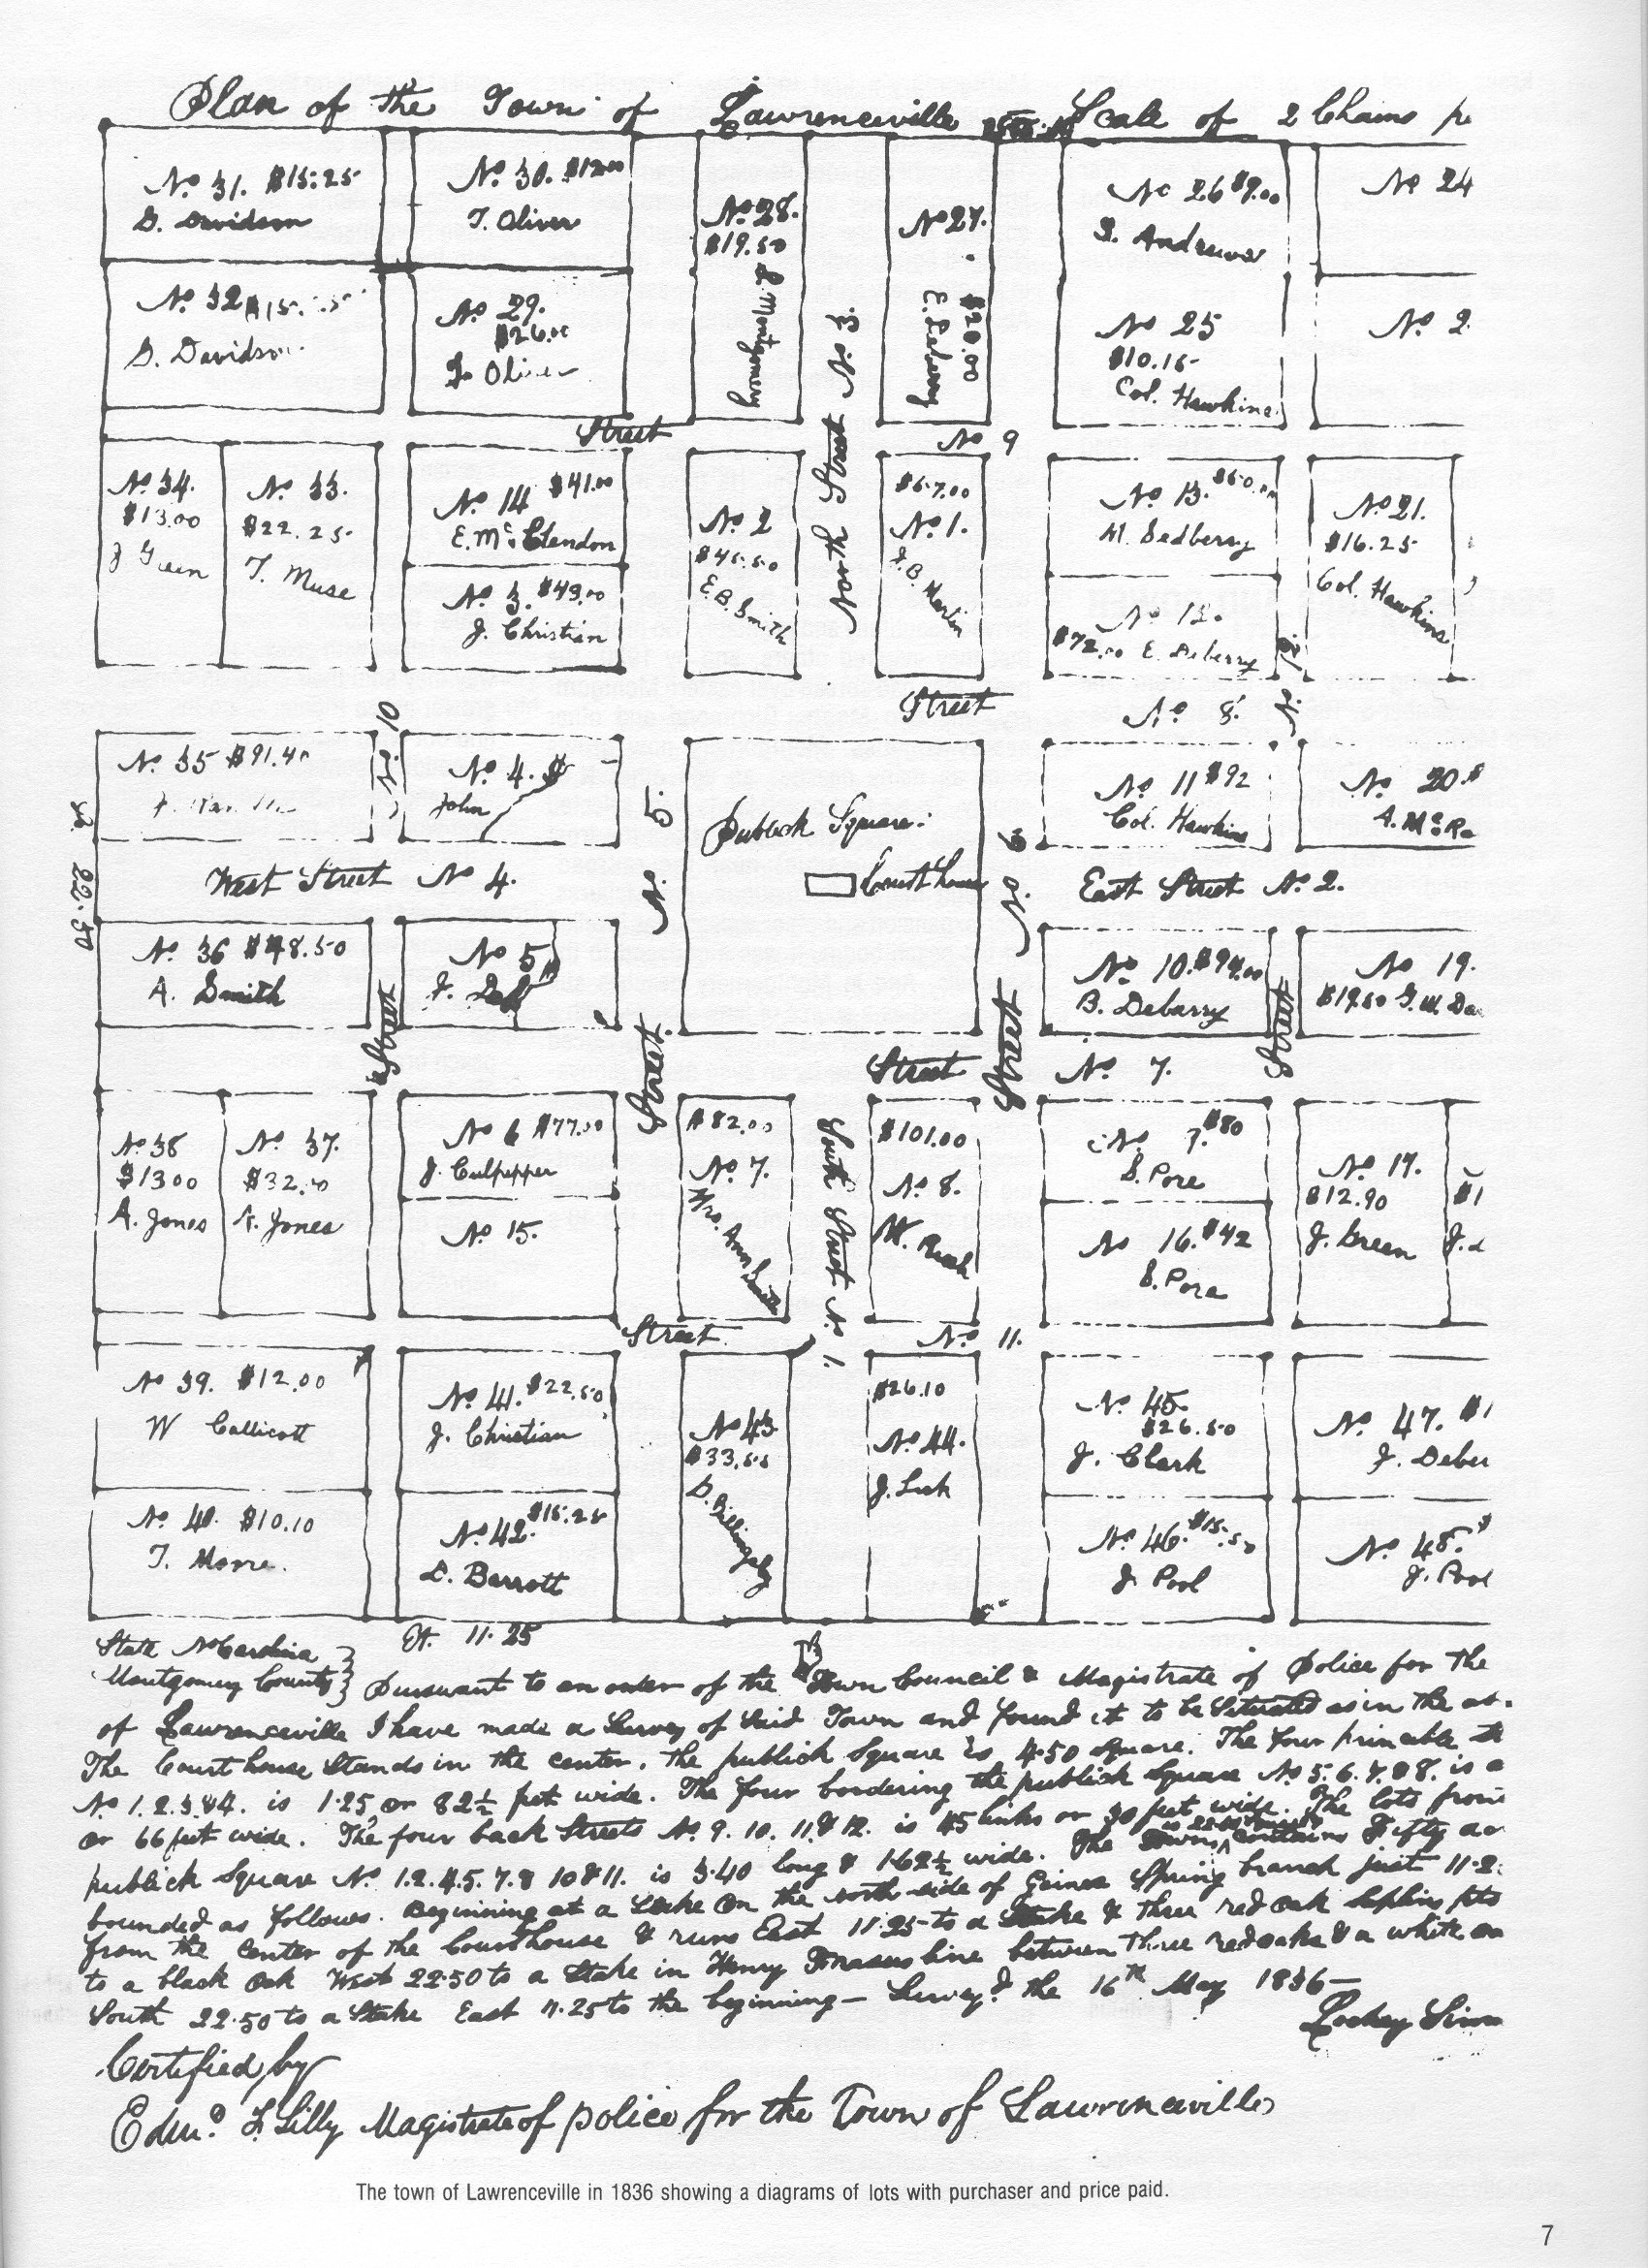 Plan of the Town of Lawrenceville Scale of 2 Chains pe
No. 31. $15.25
D. Davidson
No. 30. $12.00
T. Oliver
No. 28.
$19.50
Montgomery
No 27.
$20.00
E. Deberry
No 26 $9.00
Andrews
No 24
No. 32
D. Davidson
No 29.
$26.00
Oliver
North Street No 3.
No 25
$10.15
Col. Hawkins
No. 2
Street
No 9
No 34.
$13.00
J Green
No. 33.
$22.25
T. Muse
No 14 $41.00
E. McClendon
No 3. $49.00
J. Christian
No 2
$45.50
E. B. Smith
$67.00
No 1.
J. B. Martin
No 13.
H. Dedberry
No 12.
$72.00 E. Deberry
No 21.
$16.25
Col. Hawkins
Street
No 8.
No 10
No. 35 $91.40
No 4. $
John
No. 5.
Publick Square:
Court house
No. 6
No 11 $92
Col. Hawkins
No 20. $
A. McRa
22.50
West Street No 4.
East Street No 2.
No. 36 $48.50
A. Smith
No 5
J.
No. 10. $94.00
B. Debarry
No 19.
$19.50 G. W. De
Street
Street
Street
Street
Street No 7.
No 38
$13.00
A. Jones
No 37.
$32.00
A. Jones
No 6 $77.00
J. Culpepper
No 15.
$82.00
No 7.
Mrs. Ann Smith
South Street No 1.
$101.00
No 8.
$80
S. Pore
No 16. $42
S. Pore
No 17.
$12.90
J. Green
$1
J.
Street
No 11.
No 39. $12.00
W Callicott
No 41. $22.50
J. Christian
No 43
D. Billingsley
$26.10
No 44.
J. Lisk
No 45
$26.50
J. Clark
No. 47. $1
J. Deber
No 40. $10.10
T. Morre.
No 42 $15.25
D. Barrott
No. 46. $15.50
J. Pool
No 48. $
J. Pool
State No Carolina
Et. 11.25
Montgomery County } Pursuant to an order of the Town Council & Magistrate of Police for the
of Lawrenceville I have made a Survey of Said Town and found it to be Situated as in the ab.
The Court house Stands in the center. The publick Square is 4.50 Square. The four princable st
No 1.2.3.&4. is 1.25 or 82½ feet wide. The four bordering the publick Square No 5.6.7.&8. is a
or 66 feet wide. The four back Streets No 9. 10. 11.& 12. is 45 links or 30 feet wide. The lots fron
publick Square No. 1.2.4.5.7.8 10 & 11. is 3.40 long & 1.62½ wide. The Town contains Fifty ac
bounded as follows. Beginning at a Stake on the north side of Spring branch just 11.2
from the center of the Courthouse & runs East 11.25 to a Stake & three red oak Saplins pts
to a black oak West 22.50 to a Stake in Henry line between three red oaks & a white oa
South 22.50 to a Stake East 11.25 to the beginning — Survey'd the 16th May 1836 —
Certified by
Edm.d F. Lilly Magistrate of police for the Town of Lawrenceville
The town of Lawrenceville in 1836 showing a diagrams of lots with purchaser and price paid.
7